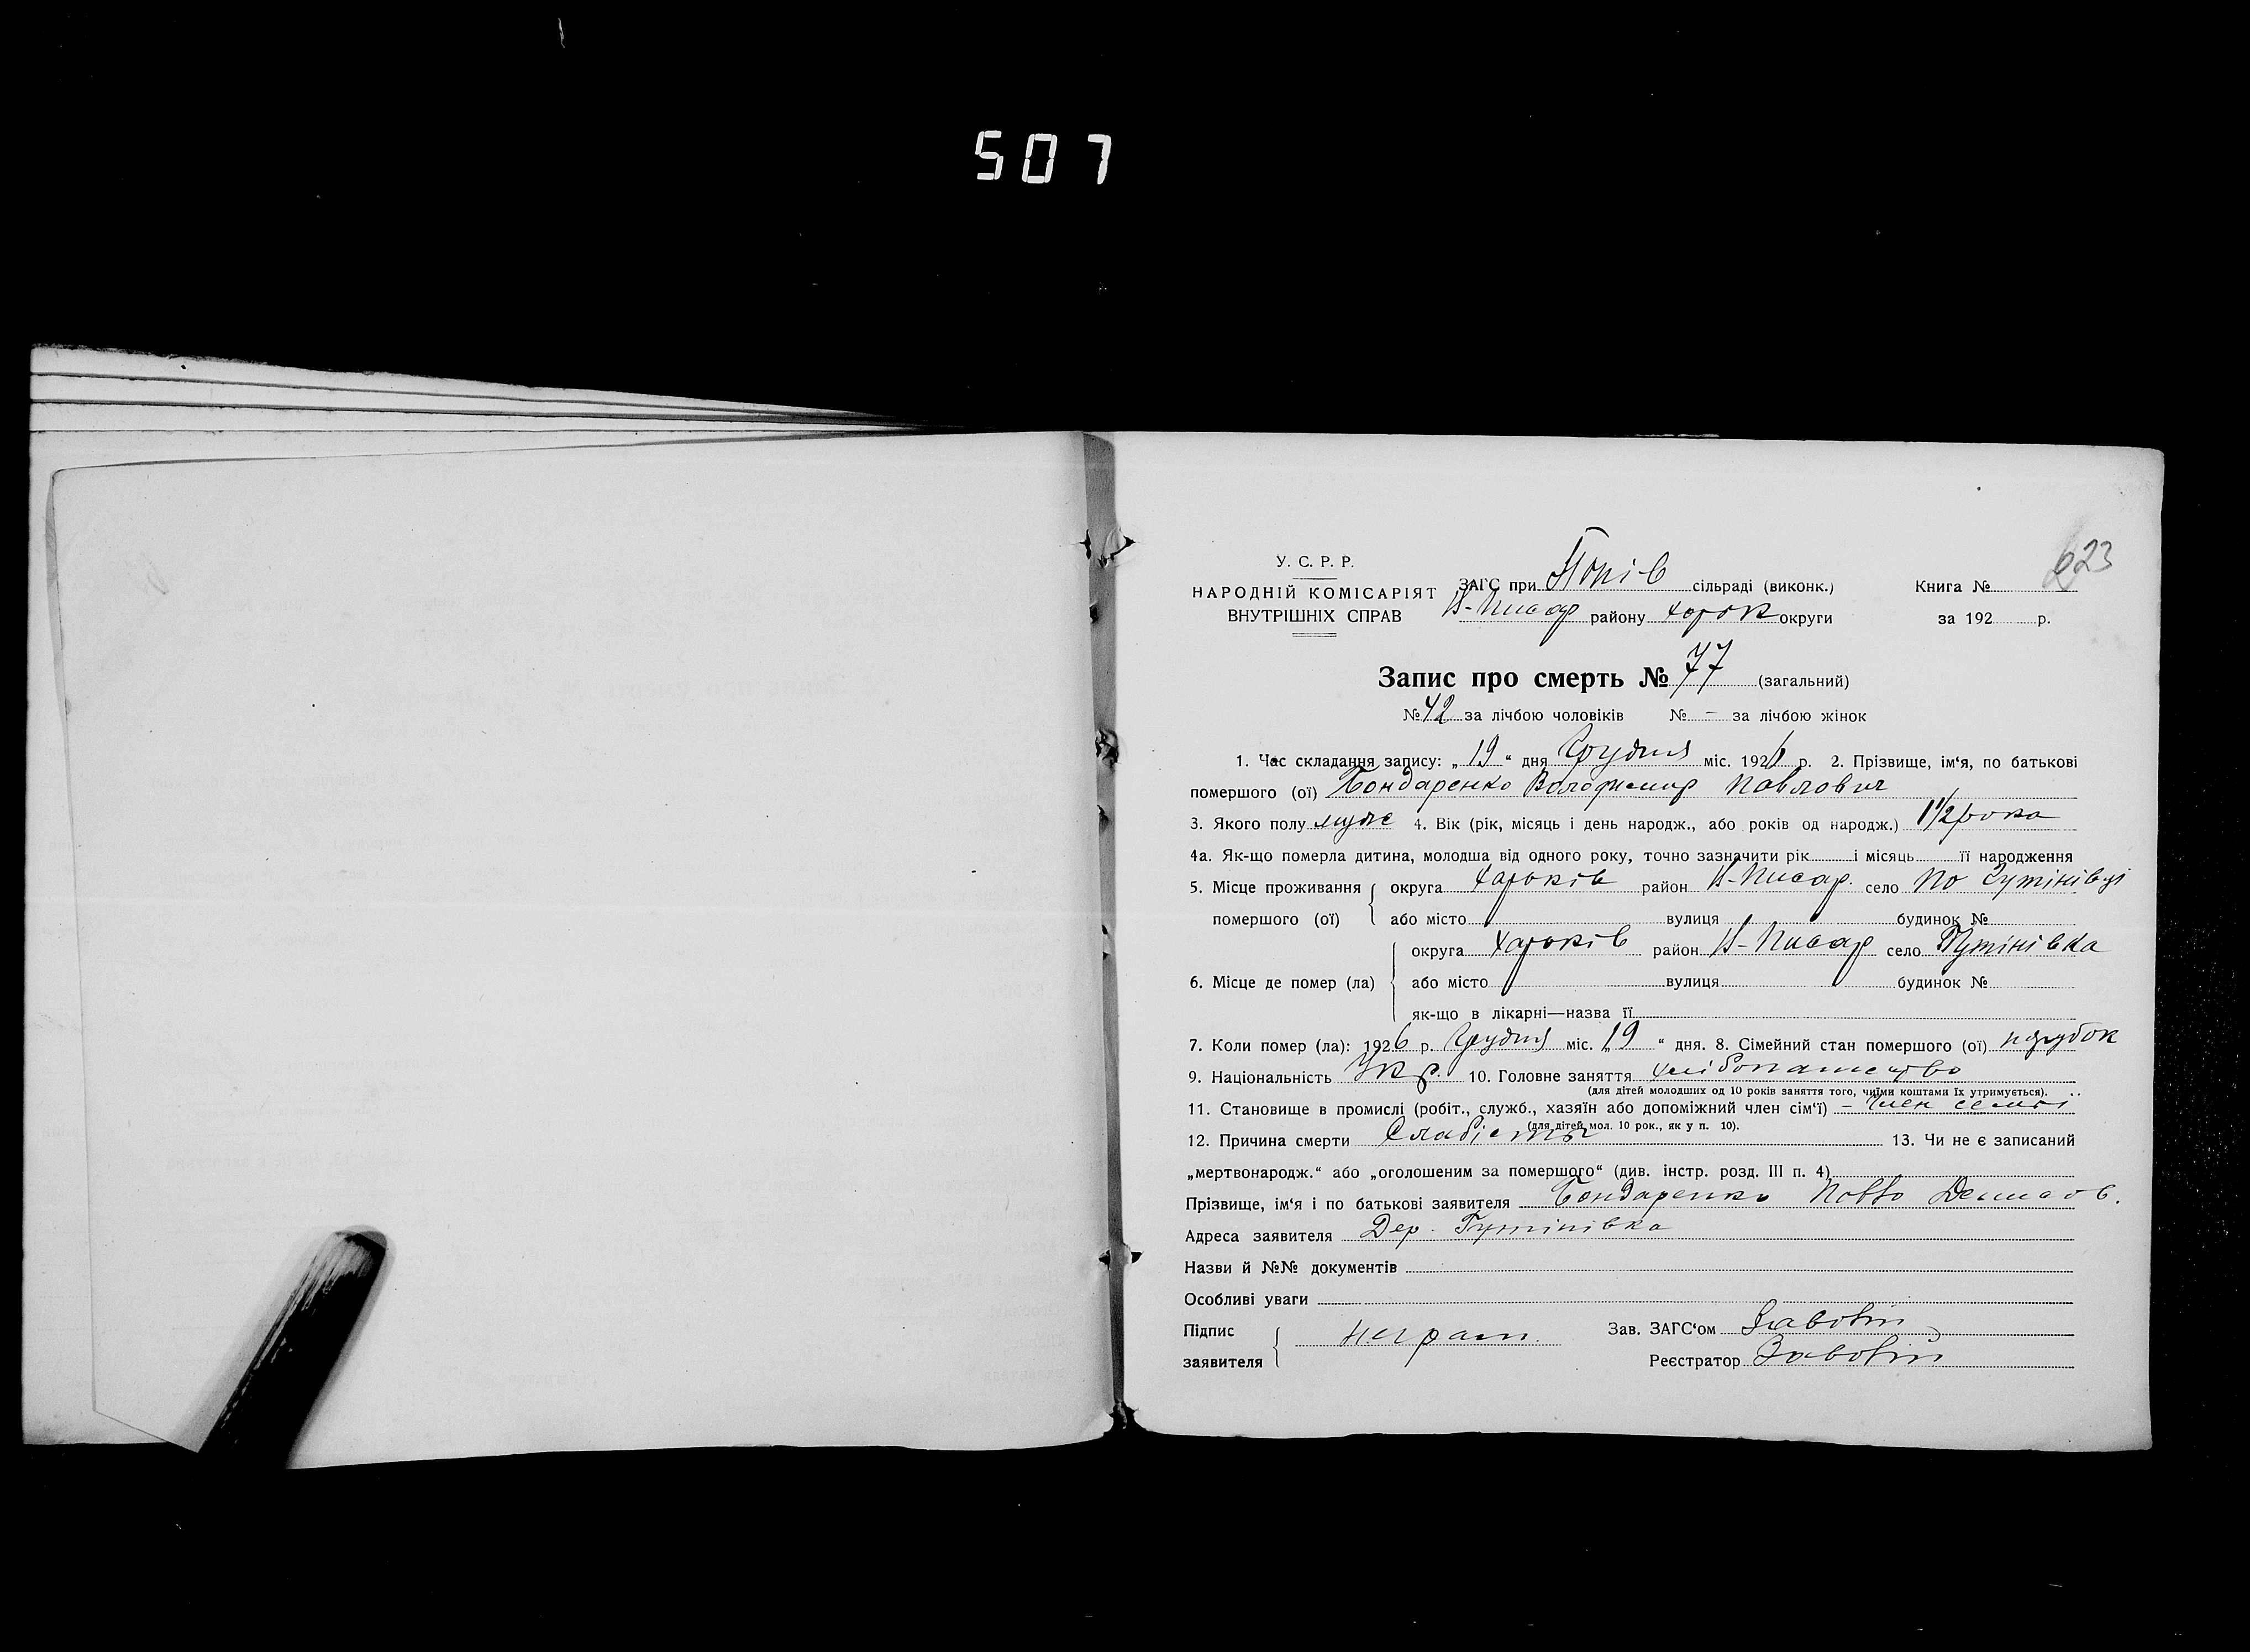 507
223
У. С. Р. Р.
НАРОДНІЙ КОМІСАРІЯТ
ВНУТРІШНІХ СПРАВ
ЗАГС при Попів сільраді (виконк.)
Н-Писар району Харьк округи
Книга №
за 192 р.
Запис про смерть № 77 (загальний)
№ 42 за лічбою чоловіків № - за лічбою жінок
1. Час складання запису: „ 19 “ дня Грудня міс. 1926 р. 2. Прізвище, ім‘я, по батькові
помершого (ої) Бондаренко Володимир Павлович
3. Якого полу муже 4. Вік (рік, місяць і день народж., або років од народж.) 1 1/2 рока
4а. Як-що померла дитина, молодша від одного року, точно зазначити рік і місяць її народження
5. Місце проживання помершого (ої) округа Харьків район Н-Писар. село по Гутінівці
або місто вулиця будинок №
6. Місце де помер (ла) округа Харьків район Н-Писар село Гутінівка
або місто вулиця будинок №
як-що в лікарні—назва її
7. Коли помер (ла): 1926 р. Грудня міс. „ 19 “ дня. 8. Сімейний стан помершого (ої) парубок
9. Національність Укр. 10. Головне заняття хлібопашество
(для дітей молодших од 10 років заняття того, чиїми коштами їх утримується).
11. Становище в промислі (робіт., служб., хазяїн або допоміжний член сім‘ї) - член семьі
(для дітей мол. 10 рок., як у п. 10).
12. Причина смерти Слабість 13. Чи не є записаний
„мертвонародж.“ або „оголошеним за помершого“ (див. інстр. розд. III п. 4)
Прізвище, ім‘я і по батькові заявителя Бондаренко Павло Денисов.
Адреса заявителя Дер. Гутінівка
Назви й №№ документів
Особливі уваги
Підпис заявителя неграм.
Зав. ЗАГС‘ом
Реєстратор